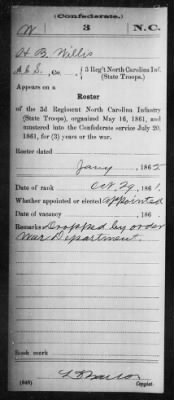 (Confederate.)
W 3 N.C.
H B. Willis
A & S., Co. , 3 Reg't North Carolina Inf. (State Troops).
Appears on a
Roster
of the 3d Regiment North Carolina Infantry
(State Troops), organized May 16, 1861, and
mustered into the Confederate service July 20,
1861, for (3) years or the war.
Roster dated
Jany , 1862
Date of rank Oct. 29, 1861.
Whether appointed or elected appointed
Date of vacancy , 186 .
Remarks: Dropped by order
War Department.
Book mark
(648) Copyist.